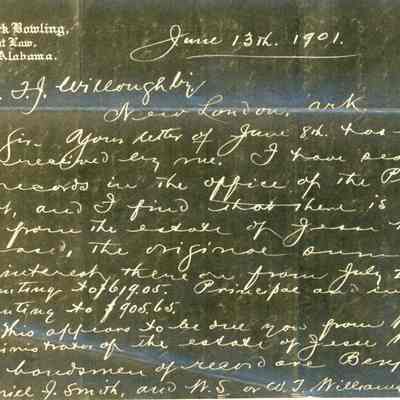 rk Bowling,
t Law.
Alabama.
June 13th. 1901.
T.J. Willoughby
New London, ark
Sir. Your letter of June 8th. has
received by me. I have sea
records in the office of the P
t, and I find that there is
from the estate of Jesse
ased, the original sum
interest there on from July
nting to $619.05. Principal and in
unting to $905.65.
This appears to be due you from
ministrator of the estate of Jesse W
bondsmen of record are Benj
niel J. Smith, and W.S. or W.T. Williams